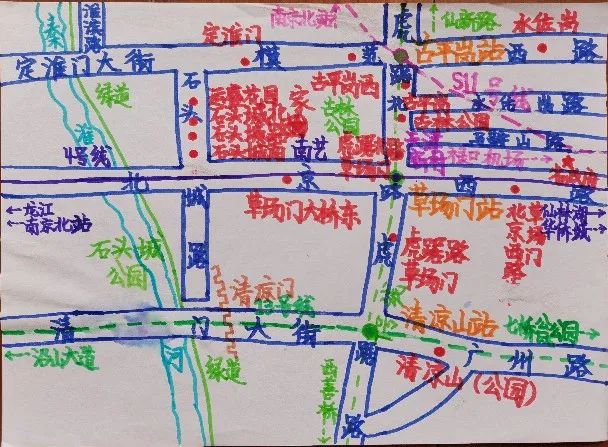 秦淮河
淮滨路
南京北站
虎踞北路
仙新路
永佐岗
定淮门
古平岗站
西路
定淮门大街
模范
S11号线
绿道
石头城路
古平岗西
古平岗
古林公园
水佐岗路
石头城北
古林公园
4号线
南艺
禄口机场
北京西路
龙江
南京北站
草场门大桥东
草场门站
草场门
北京西路
仙林湖
华侨城
石头城公园
虎踞路
草场门
清凉门
13号线
清凉山站
七桥瓮公园
清凉门大街
广州路
沿山大道
绿道
虎踞路
西善桥
清凉山(公园)